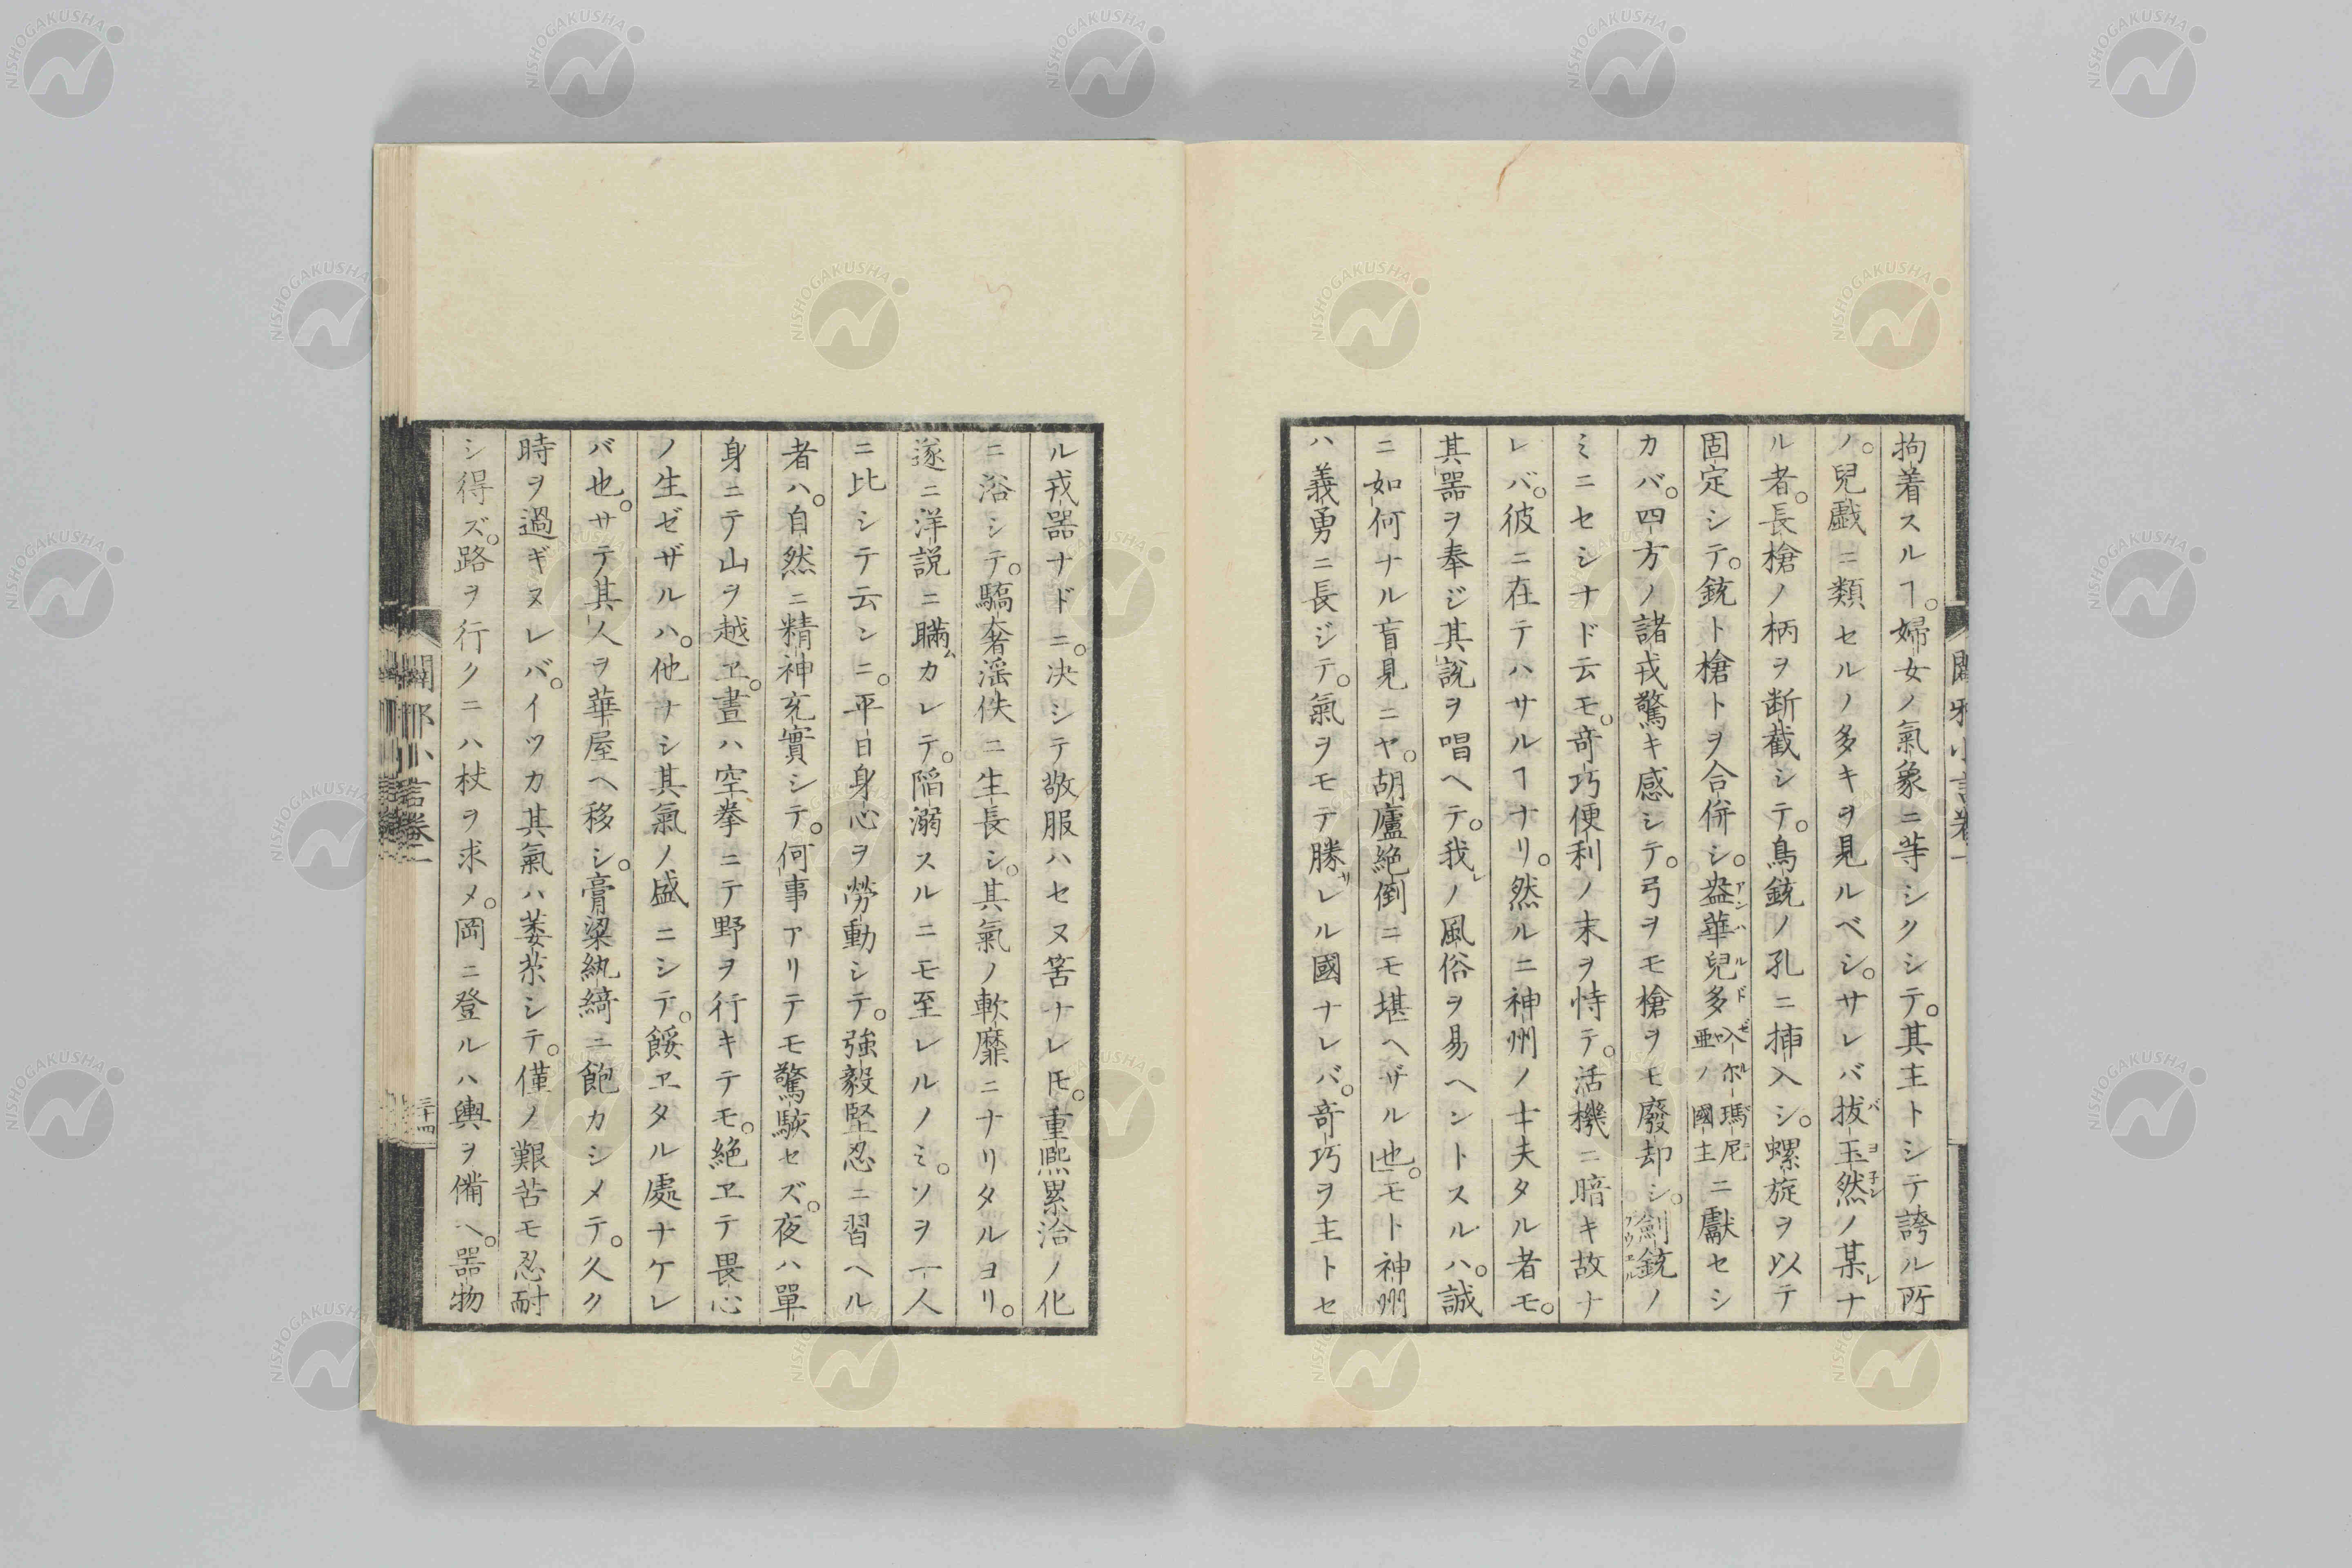 拘着スルヿ。婦女ノ氣象ニ等シクシテ。其主トシテ誇ル所
ノ。兒戯ニ類セルノ多キヲ見ルベシ。サレバ拔玉然ノ某レナ
ル者。長槍ノ柄ヲ断截シテ。鳥銃ノ孔ニ挿入シ。螺旋ヲ以テ
固定シテ。銃ト槍トヲ合併シ。盎華兒多入尓瑪尼亜ノ國主ニ獻セシ
カバ。四方ノ諸戎驚キ感シテ。弓ヲモ槍ヲモ廢却シ。劍銃ノ
ミニセシナド云モ。奇巧便利ノ末ヲ恃テ。活機ニ暗キ故ナ
レバ。彼ニ在テハサルヿナリ。然ルニ神州ノ士夫タル者モ。
其噐ヲ奉ジ其説ヲ唱ヘテ。我レノ風俗ヲ易ヘントスルハ。誠
ニ如何ナル盲見ニヤ。胡廬絶倒ニモ堪ヘザル也。モト神州
ハ義勇ニ長ジテ。氣ヲモテ勝リレル國ナレバ。奇巧ヲ主トセ
闢邪小言卷一
ル戎噐ナドニ。决シテ敬服ハセヌ筈ナレ𪜈。重熈累洽ノ化
ニ浴シテ。驕奢淫佚ニ生長シ。其氣ノ軟靡ニナリタルヨリ。
遂ニ洋説ニ瞞ムカレテ。陷溺スルニモ至レルノミ。ソヲ一人
ニ比シテ云ンニ。平日身心ヲ勞動シテ。強毅堅忍ニ習ヘル
者ハ。自然ニ精神充實シテ。何事アリテモ驚駭セズ。夜ハ單
身ニテ山ヲ越ヱ。晝ハ空拳ニテ野ヲ行キテモ。絶ヱテ畏心
ノ生ゼザルハ。他ナシ其氣ノ盛ニシテ。餒ヱタル處ナケレ
バ也。サテ其人ヲ華屋ヘ移シ。膏粱紈綺ニ飽カシメテ。久ク
時ヲ過ギヌレバ。イツカ其氣ハ萎苶シテ。僅ノ艱苦モ忍耐
シ得ズ。路ヲ行クニハ杖ヲ求メ。岡ニ登ルハ輿ヲ備ヘ。噐物
闢邪小言卷一
三十四